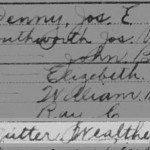 Penny, Jos. E.
uthworth Jos. W
John B
Elizabeth
William
Ray C
utter, Wealthe